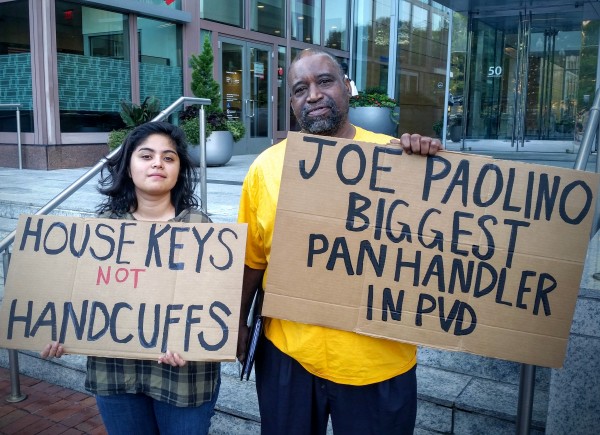 HOUSE KEYS
NOT
HANDCUFFS
JOE PAOLINO
BIGGEST
PANHANDLER
IN PVD
50